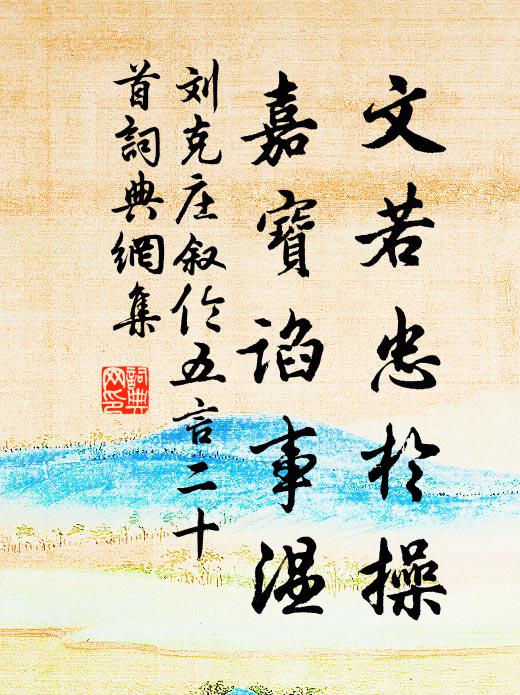 文若忠於操
嘉寶谄事温
刘克庄叙伦五言二十
首詞典網集
詞典網印